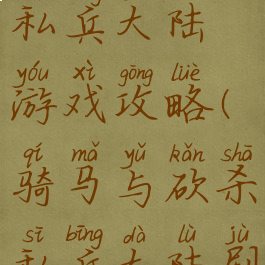 私兵大陆
yóu xì gōng lüè
游戏攻略(
qí mǎ yǔ kǎn shā
骑马与砍杀
sī bīng dà lù jù
私兵大陆剧